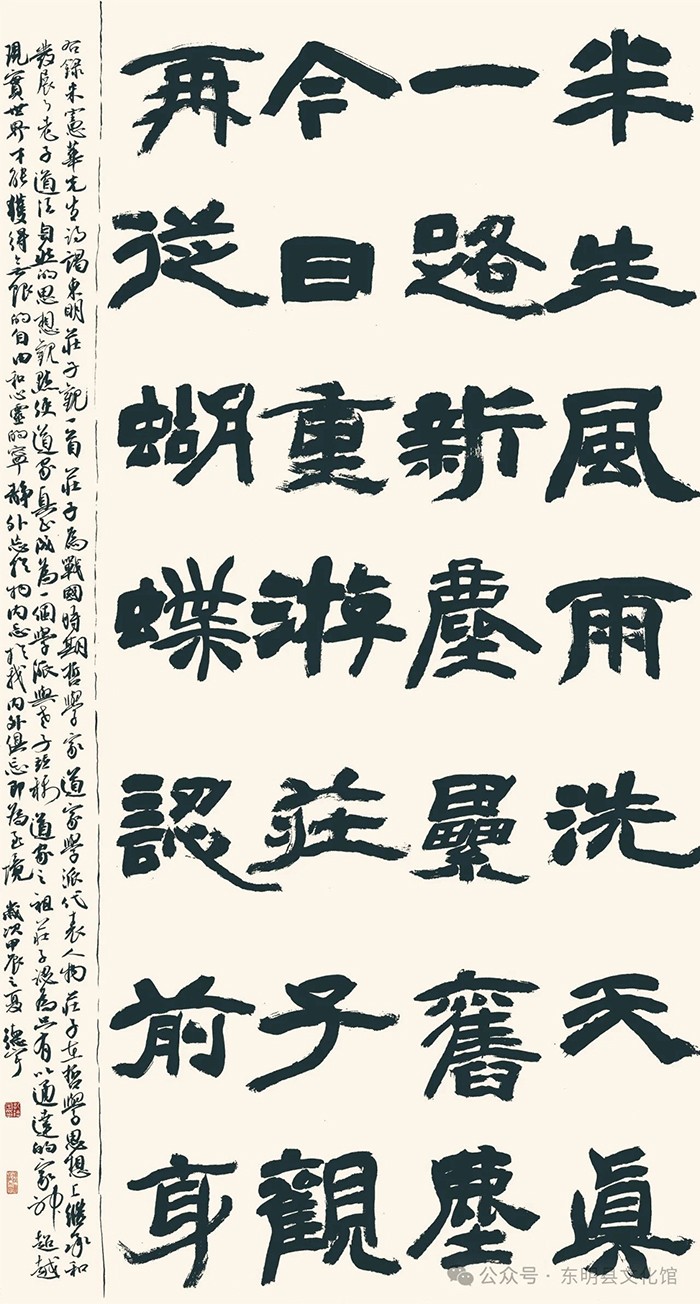 半生風雨洗天真
一路新塵壘舊塵
今日重游莊子觀
再從蝴蝶認前身
右録朱憲華先生詩謁東明莊子觀一首莊子為戰國時期哲學家道家學派代表人物莊子在哲學思想上繼承和
發展了老子道法自然的思想觀點使道家真正成為一個學派與老子並稱道家之祖莊子認為只有以通達的精神超越
現實世界才能獲得無限的自由和心靈的寧靜外忘於物內忘於我內外俱忘即為至境 歲次甲辰之夏
公众号·东明县文化馆